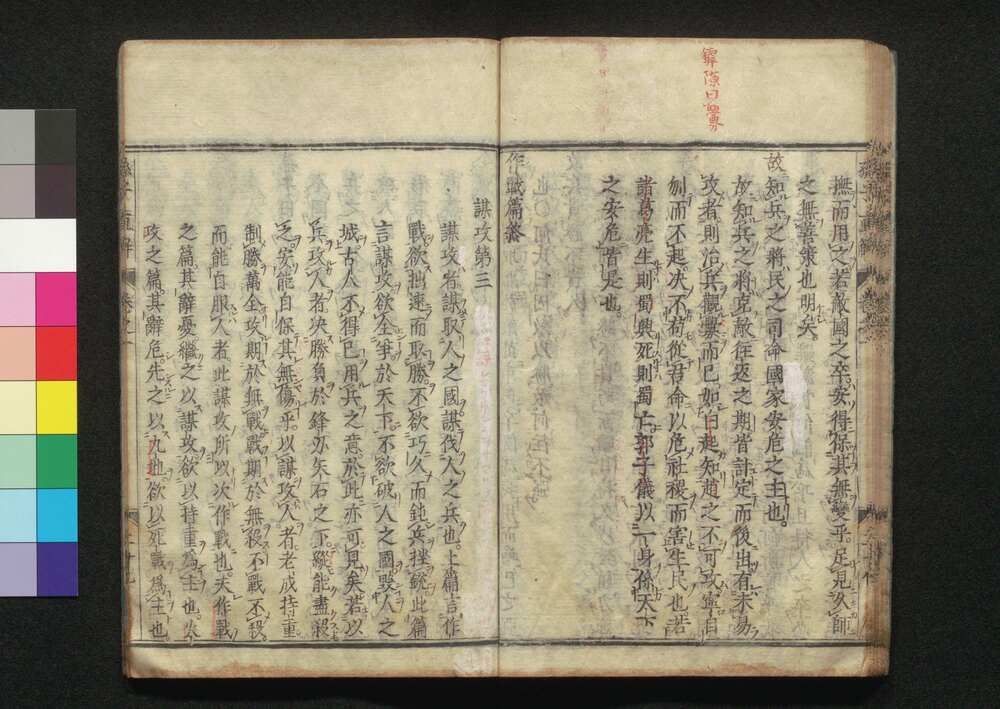 撫而用之若敵國之卒安得保其無變乎足見久師
之無善策也明矣
故知兵之將民之司命國家安危之主也
故知兵之將克敵往返之期皆計定而後出有未易
攻者則冶兵觀釁而已如白起知趙之不可攻寧自
刎而不起决不苟從君命以危社稷而害生民也若
諸葛亮生則蜀興死則蜀亡郭子儀以一身係天下
之安危皆是也
作戰篇終
謀攻第三
謀攻者謀取人之國謀伐人之兵也上篇言作
戰欲拙速而取勝不欲巧久而鈍兵挫銳此篇
言謀攻欲全爭於天下不欲破人之國毀人之
城古人不得已用兵之意於此亦可見矣若以
兵攻人者决勝負於鋒刃矢石之下縱能盡殺
之安能自保其無傷乎以謀攻人者老成持重
制勝萬全攻期於無戰戰期於無殺不戰不殺
而能自服人者此謀攻所以次作戰也夫作戰
之篇其辭憂繼之以謀攻欲以持重為主也
攻之篇其辭危先之以九地欲以死戰為主也